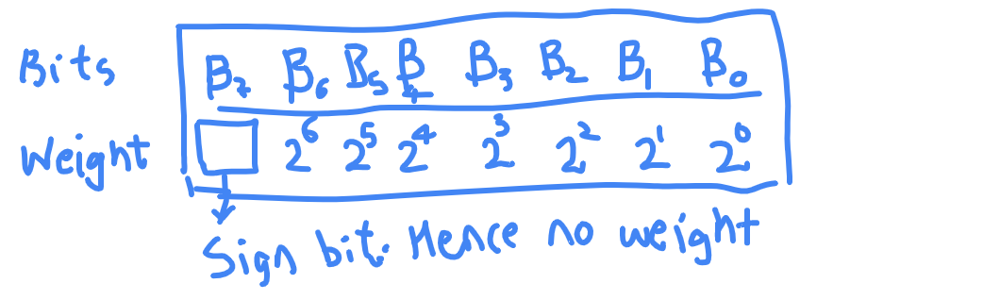 Bits B₇ B₆ B₅ B₄ B₃ B₂ B₁ B₀
Weight 2⁶ 2⁵ 2⁴ 2³ 2² 2¹ 2⁰
Sign bit. Hence no weight